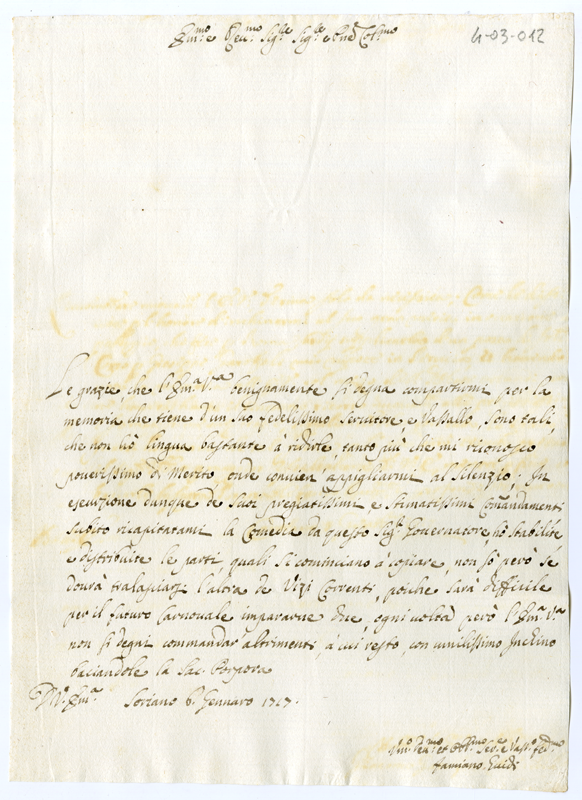 Em.mo e Rev.mo Sig.re Sig.re e Pne Col.mo
4-03-012
Le grazie, che l'Em.a V.a benignamente si degna compartirmi per la
memoria che tiene d'un suo fedelissimo servitore e Vassallo, sono tali,
che non hò lingua bastante à ridirle, tanto più che mi riconosco
poverissimo di Merito, onde convien' appigliarmi al silenzio; In
esecuzione dunque de suoi pregiatissimi e stimatissimi Comandamenti
subito ricapitatami la Comedia da questo Sig.r Governatore, hò stabilite
e distribuite le parti, quali si cominciano à copiare, non sò però se
dovrà tralasciarsi l'altra de Vizi Correnti, poiche sarà difficile
per il futuro Carnovale impararne due, ogni volta però l'Em.a V.a
non si degni commandar altrimenti, à cui resto, con umilissimo Inchino
baciandole la Sac. Porpora
D. V. Em.a Soriano 6 Gennaro 1717.
Um.o Dev.mo et Obb.mo Ser.e e Vass.o fed.mo
Famiano Guidi